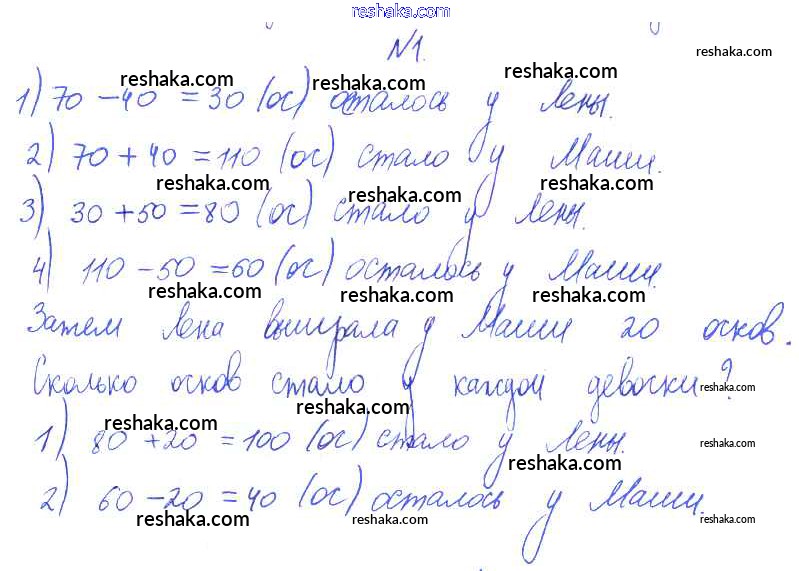 reshaka.com
№1.
reshaka.com
1) 70 - 40 = 30 (ос) осталось у Лены.
reshaka.com reshaka.com reshaka.com
2) 70 + 40 = 110 (ос) стало у Маши.
reshaka.com reshaka.com reshaka.com
3) 30 + 50 = 80 (ос) стало у Лены.
4) 110 - 50 = 60 (ос) осталось у Маши.
reshaka.com reshaka.com reshaka.com
Затем Лена выиграла у Маши 20 осков.
Сколько осков стало у каждой девочки?
reshaka.com
reshaka.com reshaka.com
1) 80 + 20 = 100 (ос) стало у Лены.
reshaka.com
reshaka.com
2) 60 - 20 = 40 (ос) осталось у Маши.
reshaka.com reshaka.com reshaka.com